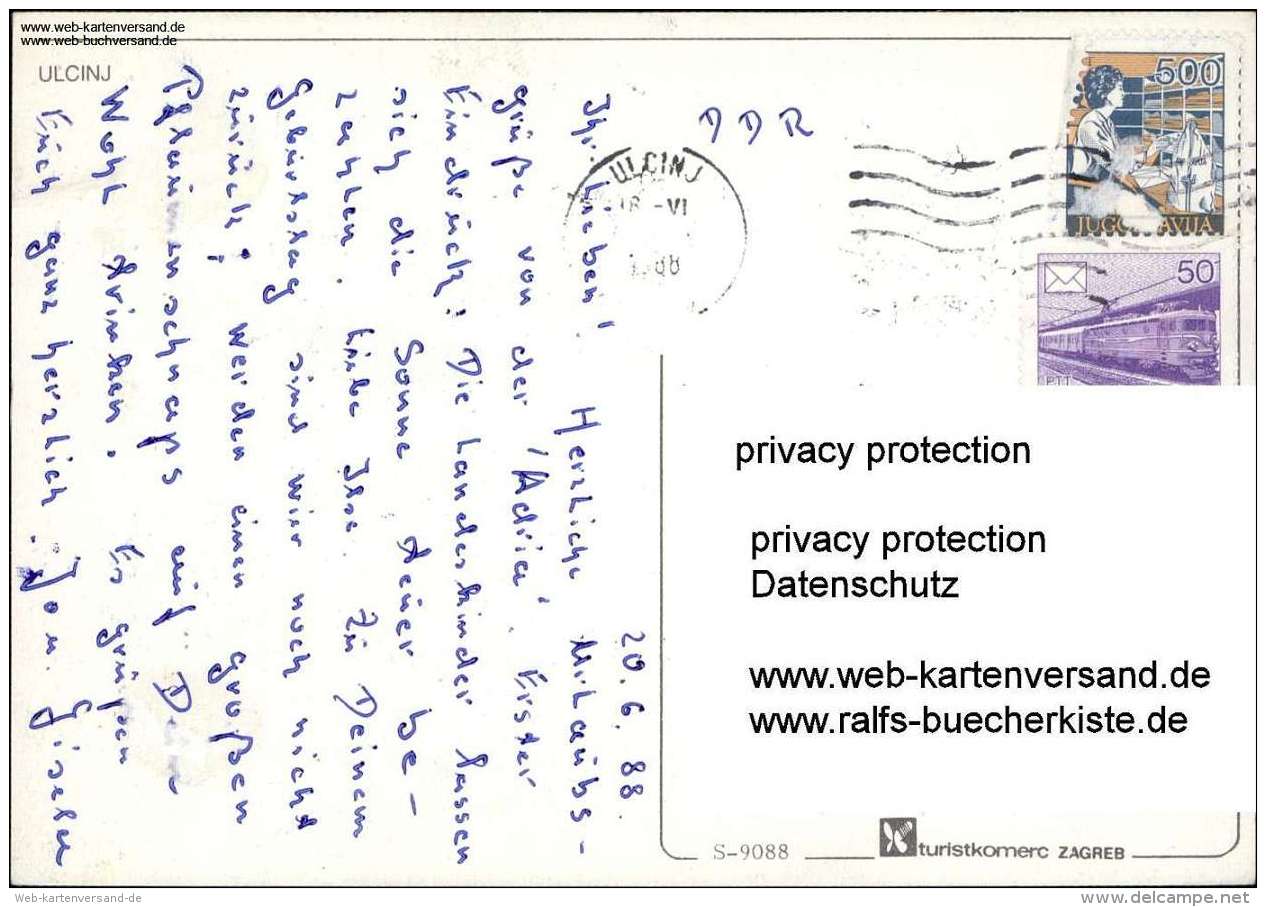 www.web-kartenversand.de
www.web-buchversand.de
ULCINJ
20.6.88.
Ihr Lieben! Herzliche Urlaubs-
grüße von der 'Adria'. Erster
Eindruck: Die Landeskinder lassen
sich die Sonne teuer be-
zahlen. Liebe Ilse. Zu Deinem
Geburtstag sind wir noch nicht
zurück; werden einen großen
Pflaumenschnaps auf Dein
Wohl trinken. Es grüßen
Euch ganz herzlich. Gisela
DDR
ULCINJ
18 -VI
1988
500
JUGOSLAVIJA
50
PTT
privacy protection
privacy protection
Datenschutz
www.web-kartenversand.de
www.ralfs-buecherkiste.de
S-9088
turistkomerc ZAGREB
Web-kartenversand-de
delcampe.net